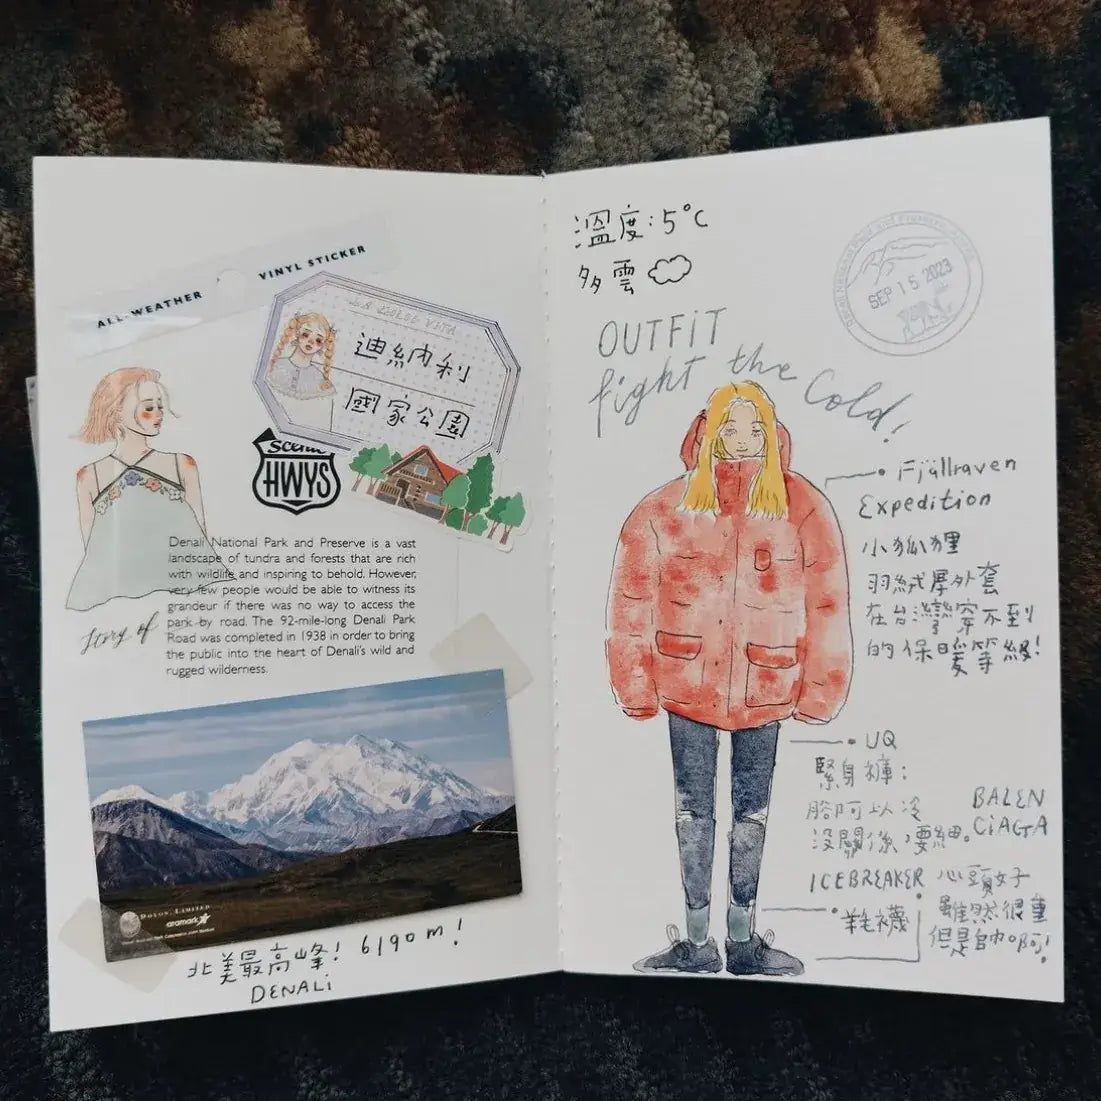 ALL-WEATHER
VINYL STICKER
LA DOLCE VITA
迪納利
國家公園
Scenic
HWYS
Denali National Park and Preserve is a vast
landscape of tundra and forests that are rich
with wildlife and inspiring to behold. However,
very few people would be able to witness its
grandeur if there was no way to access the
park by road. The 92-mile-long Denali Park
Road was completed in 1938 in order to bring
the public into the heart of Denali's wild and
rugged wilderness.
Story of
DOYON, LIMITED
aramark
北美最高峰! 6190m!
DENALi
溫度:5°C
多雲
SEP 15 2023
OUTFiT
fight the Cold!
Fjällraven
Expedition
小狐狸
羽絨厚外套
在台灣穿不到
的保暖等級!
UQ
緊身褲:
腳可以冷
沒關係,要細。
BALEN
CiAGA
ICEBREAKER
羊毛襪
心頭好
雖然很重
但是自ㄉ啊!